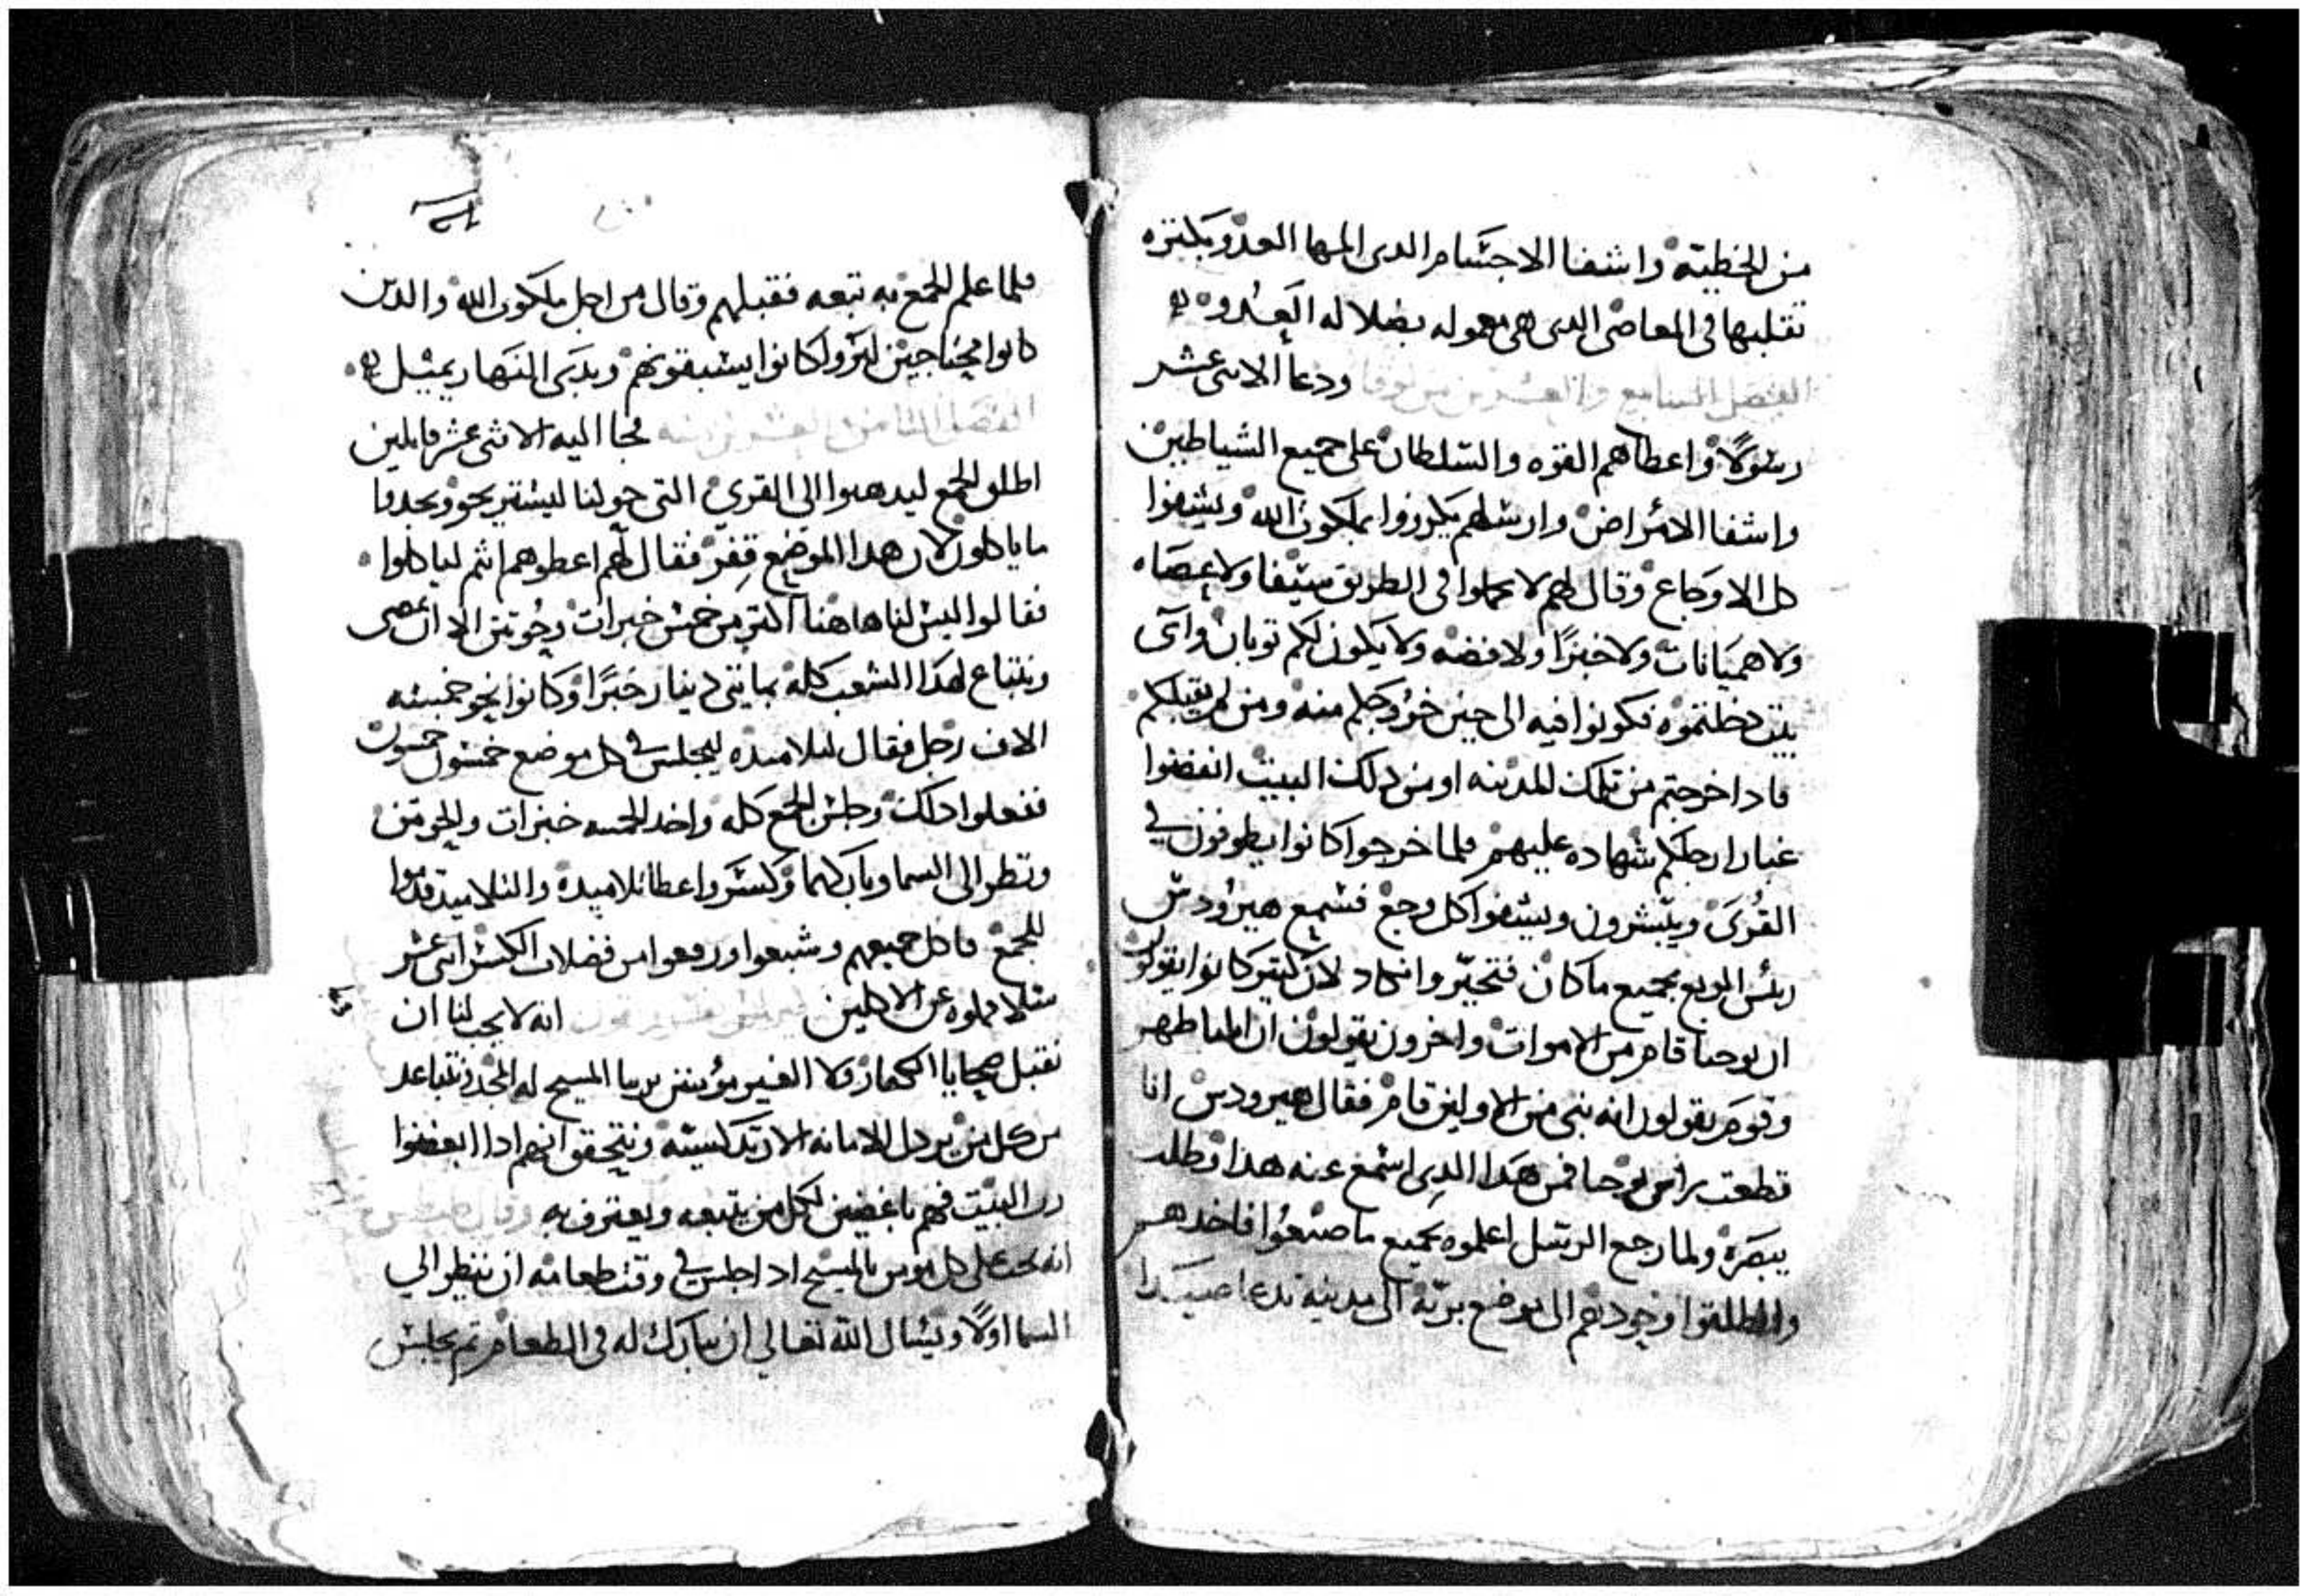 من الخطيه واشفا الاجسام الدى المها العدو بكتره
تقلبها فى المعاصى الدى هى معموله بضلاله العدو
الفصل السابع والعشرين من لوقا ودعا الاثنى عشر
رسولاً واعطاهم القوه والسلطان على جميع الشياطين
واشفا الامراض وارسلهم يكرزوا بملكوت الله ويشفوا
كل الاوجاع وقال لهم لا تحملوا فى الطريق سيفا ولا عصاه
ولا هميانات ولا خبزًا ولا فضه ولا يكون لكم توبان واى
بيت دخلتموه فكونوا فيه الى حين خروجكم منه ومن لم يقبلكم
فادا خرجتم من تلك المدينه او من دلك البيت انفضوا
غبار ارجلكم شهاده عليهم فلما خرجوا كانوا يطوفون في
القرى ويبشرون ويشفوا كل وجع فسمع هيرودس
ريس الربع بجميع ما كان فتحيّر وانكاد لان كتير كانوا يقولون
ان يوحنا قام من الاموات واخرون يقولون ان ايليا ظهر
وقوم يقولون انه نبى من الاولين قام فقال هيرودس انا
قطعت راس يوحنا فمن هدا الدى اسمع عنه هذا وطلب
يبصره ولما رجع الرسل اعلموه بجميع ما صنعوا فاخدهم
وانطلقوا وحودهم الى موضع بريه الى مدينه تدعا صيدا
فلما علم الجمع به تبعه فقبلهم وقال من اجل ملكوت الله والدين
كانوا محتاجين البرو كانوا يشبقونهم وبدى النهار يميل
الفصل التامن والعشرين منه فجا اليه الاثنى عشر قايلين
اطلق الجمع ليدهبوا الى القرى التى حولنا ليستريحو ويجدوا
ما ياكلون لان هدا الموضع قفر فقال لهم اعطوهم انتم لياكلوا
فقالوا ليس لنا هاهنا اكتر من خمس خبزات وحوتين الا ان نمضى
ونبتاع لهذا الشعب كله بمايتى دينار خبزًا وكانوا نحو خمسه
الاف رجل فقال لتلاميده ليجلس فى كل موضع خمسون خمسون
ففعلوا دلك وجلس الجمع كله واخد الخمسه خبزات والحوتين
ونظر الى السما وباركهما وكسر واعطا تلاميده والتلاميد قدموا
للجمع فاكل جميعهم وشبعوا ورفعوا من فضلات الكسر اثنى عشر
سلا مملوه عن الاكلين انه لا يجب لنا ان
نقبل هدايا الكفار ولا الغير مؤمنين بربنا المسيح له المجد ونتباعد
من كل من يردل الامانه الارتدكسيه ونتحقق انهم ادا ابغضوا
رب البيت فهم باغضين لكل من يتبعه ويعترف به وقال
انه يجب على كل مومن بالمسيح ادا جلس فى وقت طعامه ان ينظر الي
السما اولًا ويسال الله تعالي ان يبارك له فى الطعام تم يجلس